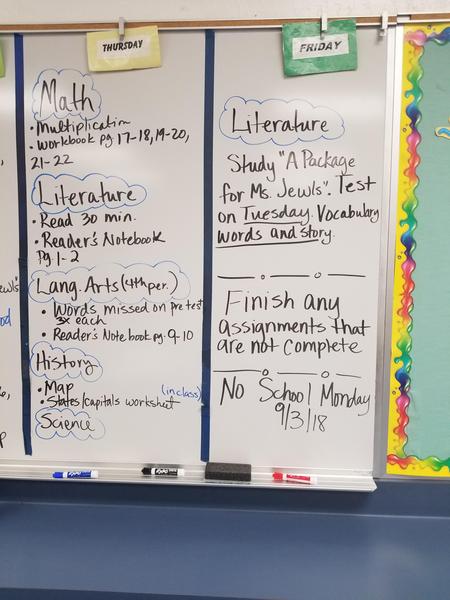 THURSDAY
Math
• Multiplication
• Workbook pg 17-18, 19-20,
21-22
Literature
• Read 30 min.
• Reader's Notebook
Pg 1-2
Lang. Arts (4th per.)
• Words missed on pretest
3x each
• Reader's Notebook pg. 9-10
History
• Map (in class)
• States/capitals worksheet
Science
FRIDAY
Literature
Study "A Package
for Ms. Jewls". Test
on Tuesday. Vocabulary
words and story.
Finish any
assignments that
are not complete
No School Monday
9/3/18